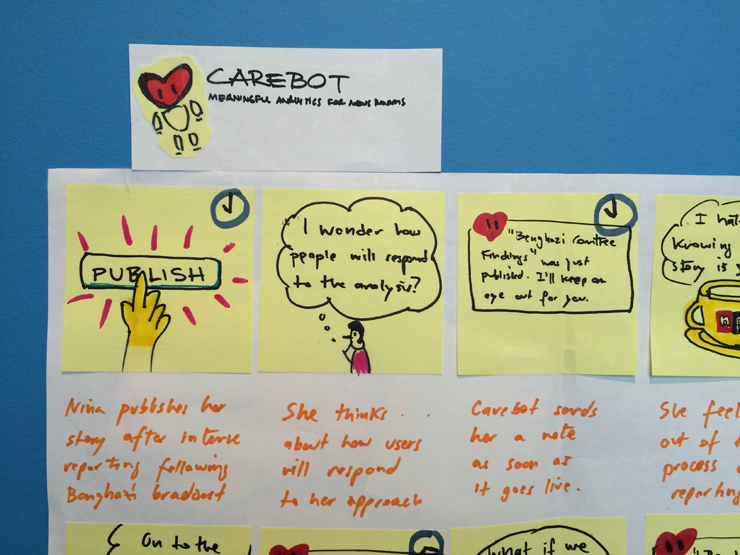 CAREBOT
MEANINGFUL ANALYTICS FOR NEWS ROOMS
PUBLISH
I wonder how
people will respond
to the analysis?
"Benghazi comittee
Findings" was just
published. I'll keep an
eye out for you.
I hat
Knowing
story is y
Nina publishes her
story after intense
reporting following
Benghazi
She thinks
about how users
will respond
to her approach
Carebot sends
her a note
as soon as
it goes live.
She feel
out of
process
reporting
On to the
What if we